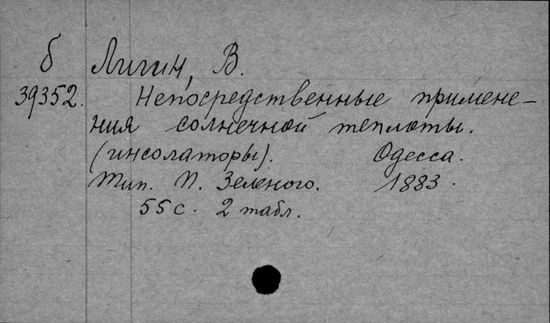 б Лигин, В.
39352. Непосредственные примене-
ния солнечной теплоты.
(инсолаторы). Одесса.
Тип. П. Зеленого. 1883.
55 с. 2 табл.